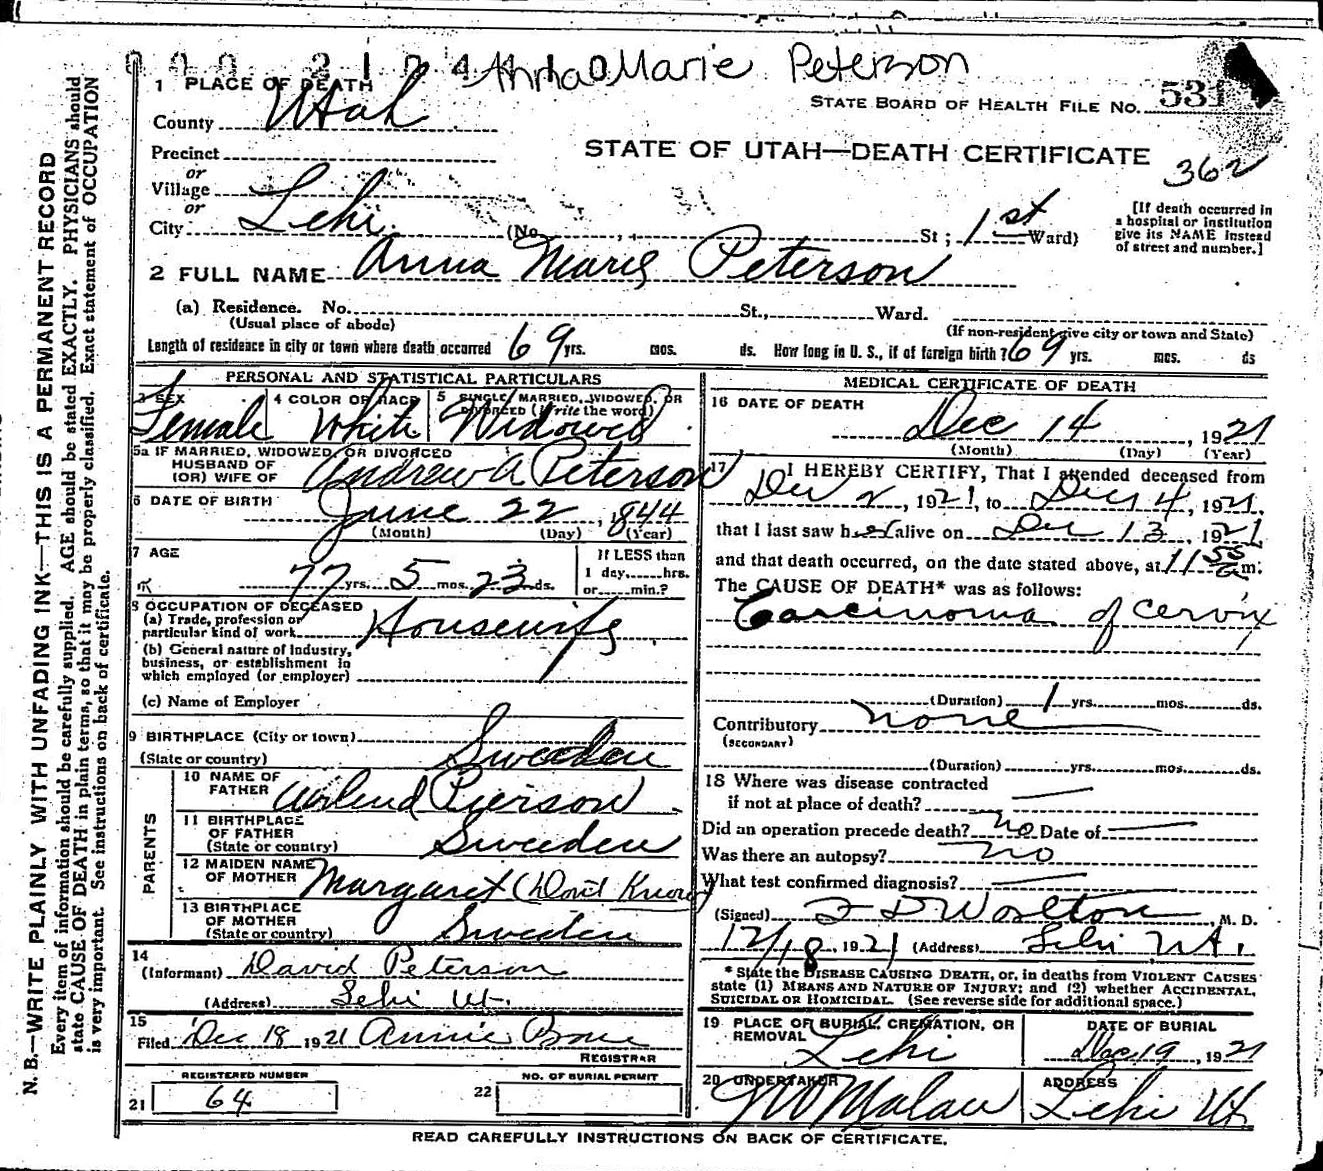 Anna Marie Peterson
1 PLACE OF DEATH
STATE BOARD OF HEALTH FILE NO. 531
County Utah
STATE OF UTAH—DEATH CERTIFICATE
362
Precinct
or
Village
or
City Lehi (No. St; 1st Ward)
[If death occurred in
a hospital or institution
give its NAME instead
of street and number.]
2 FULL NAME Anna Marie Peterson
(a) Residence. No. St., Ward.
(Usual place of abode)
(If non-resident give city or town and State)
Length of residence in city or town where death occurred 69 yrs. mos. ds. How long in U. S., if of foreign birth? 69 yrs. mos. ds
PERSONAL AND STATISTICAL PARTICULARS
3 SEX
Female
4 COLOR OR RACE
White
5 SINGLE, MARRIED, WIDOWED, OR
DIVORCED (Write the word)
Widowed
5a IF MARRIED, WIDOWED, OR DIVORCED
HUSBAND OF
(OR) WIFE OF Andrew A Peterson
6 DATE OF BIRTH
June 22, 1844
(Month) (Day) (Year)
7 AGE
77 yrs. 5 mos. 23 ds.
If LESS than
1 day, hrs.
or min.?
8 OCCUPATION OF DECEASED
(a) Trade, profession or
particular kind of work Housewife
(b) General nature of Industry,
business, or establishment in
which employed (or employer)
(c) Name of Employer
9 BIRTHPLACE (City or town)
(State or country) Sweeden
PARENTS
10 NAME OF
FATHER Pierson
11 BIRTHPLACE
OF FATHER
(State or country) Sweeden
12 MAIDEN NAME
OF MOTHER Margaret (Don't Know)
13 BIRTHPLACE
OF MOTHER
(State or country) Sweeden
14
(Informant) David Peterson
(Address) Lehi Ut.
15
Filed Dec 18 1921 Annie
REGISTRAR
REGISTERED NUMBER
21 64
NO. OF BURIAL PERMIT
22
MEDICAL CERTIFICATE OF DEATH
16 DATE OF DEATH
Dec 14, 1921
(Month) (Day) (Year)
17 I HEREBY CERTIFY, That I attended deceased from
Dec 2, 1921, to Dec 14, 1921,
that I last saw her alive on Dec 13, 1921
and that death occurred, on the date stated above, at 11 55 a m.
The CAUSE OF DEATH* was as follows:
Carcinoma of Cervix
(Duration) 1 yrs. mos. ds.
Contributory none
(SECONDARY)
(Duration) yrs. mos. ds.
18 Where was disease contracted
if not at place of death?
Did an operation precede death? no Date of
Was there an autopsy? no
What test confirmed diagnosis?
(Signed) , M. D.
12/18 1921 (Address) Lehi Ut.
* State the DISEASE CAUSING DEATH, or, in deaths from VIOLENT CAUSES
state (1) MEANS AND NATURE OF INJURY; and (2) whether ACCIDENTAL,
SUICIDAL OR HOMICIDAL. (See reverse side for additional space.)
19 PLACE OF BURIAL, CREMATION, OR
REMOVAL Lehi
DATE OF BURIAL
Dec 19, 1921
20 UNDERTAKER
ADDRESS
Lehi Ut
READ CAREFULLY INSTRUCTIONS ON BACK OF CERTIFICATE.
N. B.—WRITE PLAINLY WITH UNFADING INK—THIS IS A PERMANENT RECORD
Every item of information should be carefully supplied. AGE should be stated EXACTLY. PHYSICIANS should
state CAUSE OF DEATH in plain terms, so that it may be properly classified. Exact statement of OCCUPATION
is very important. See instructions on back of certificate.